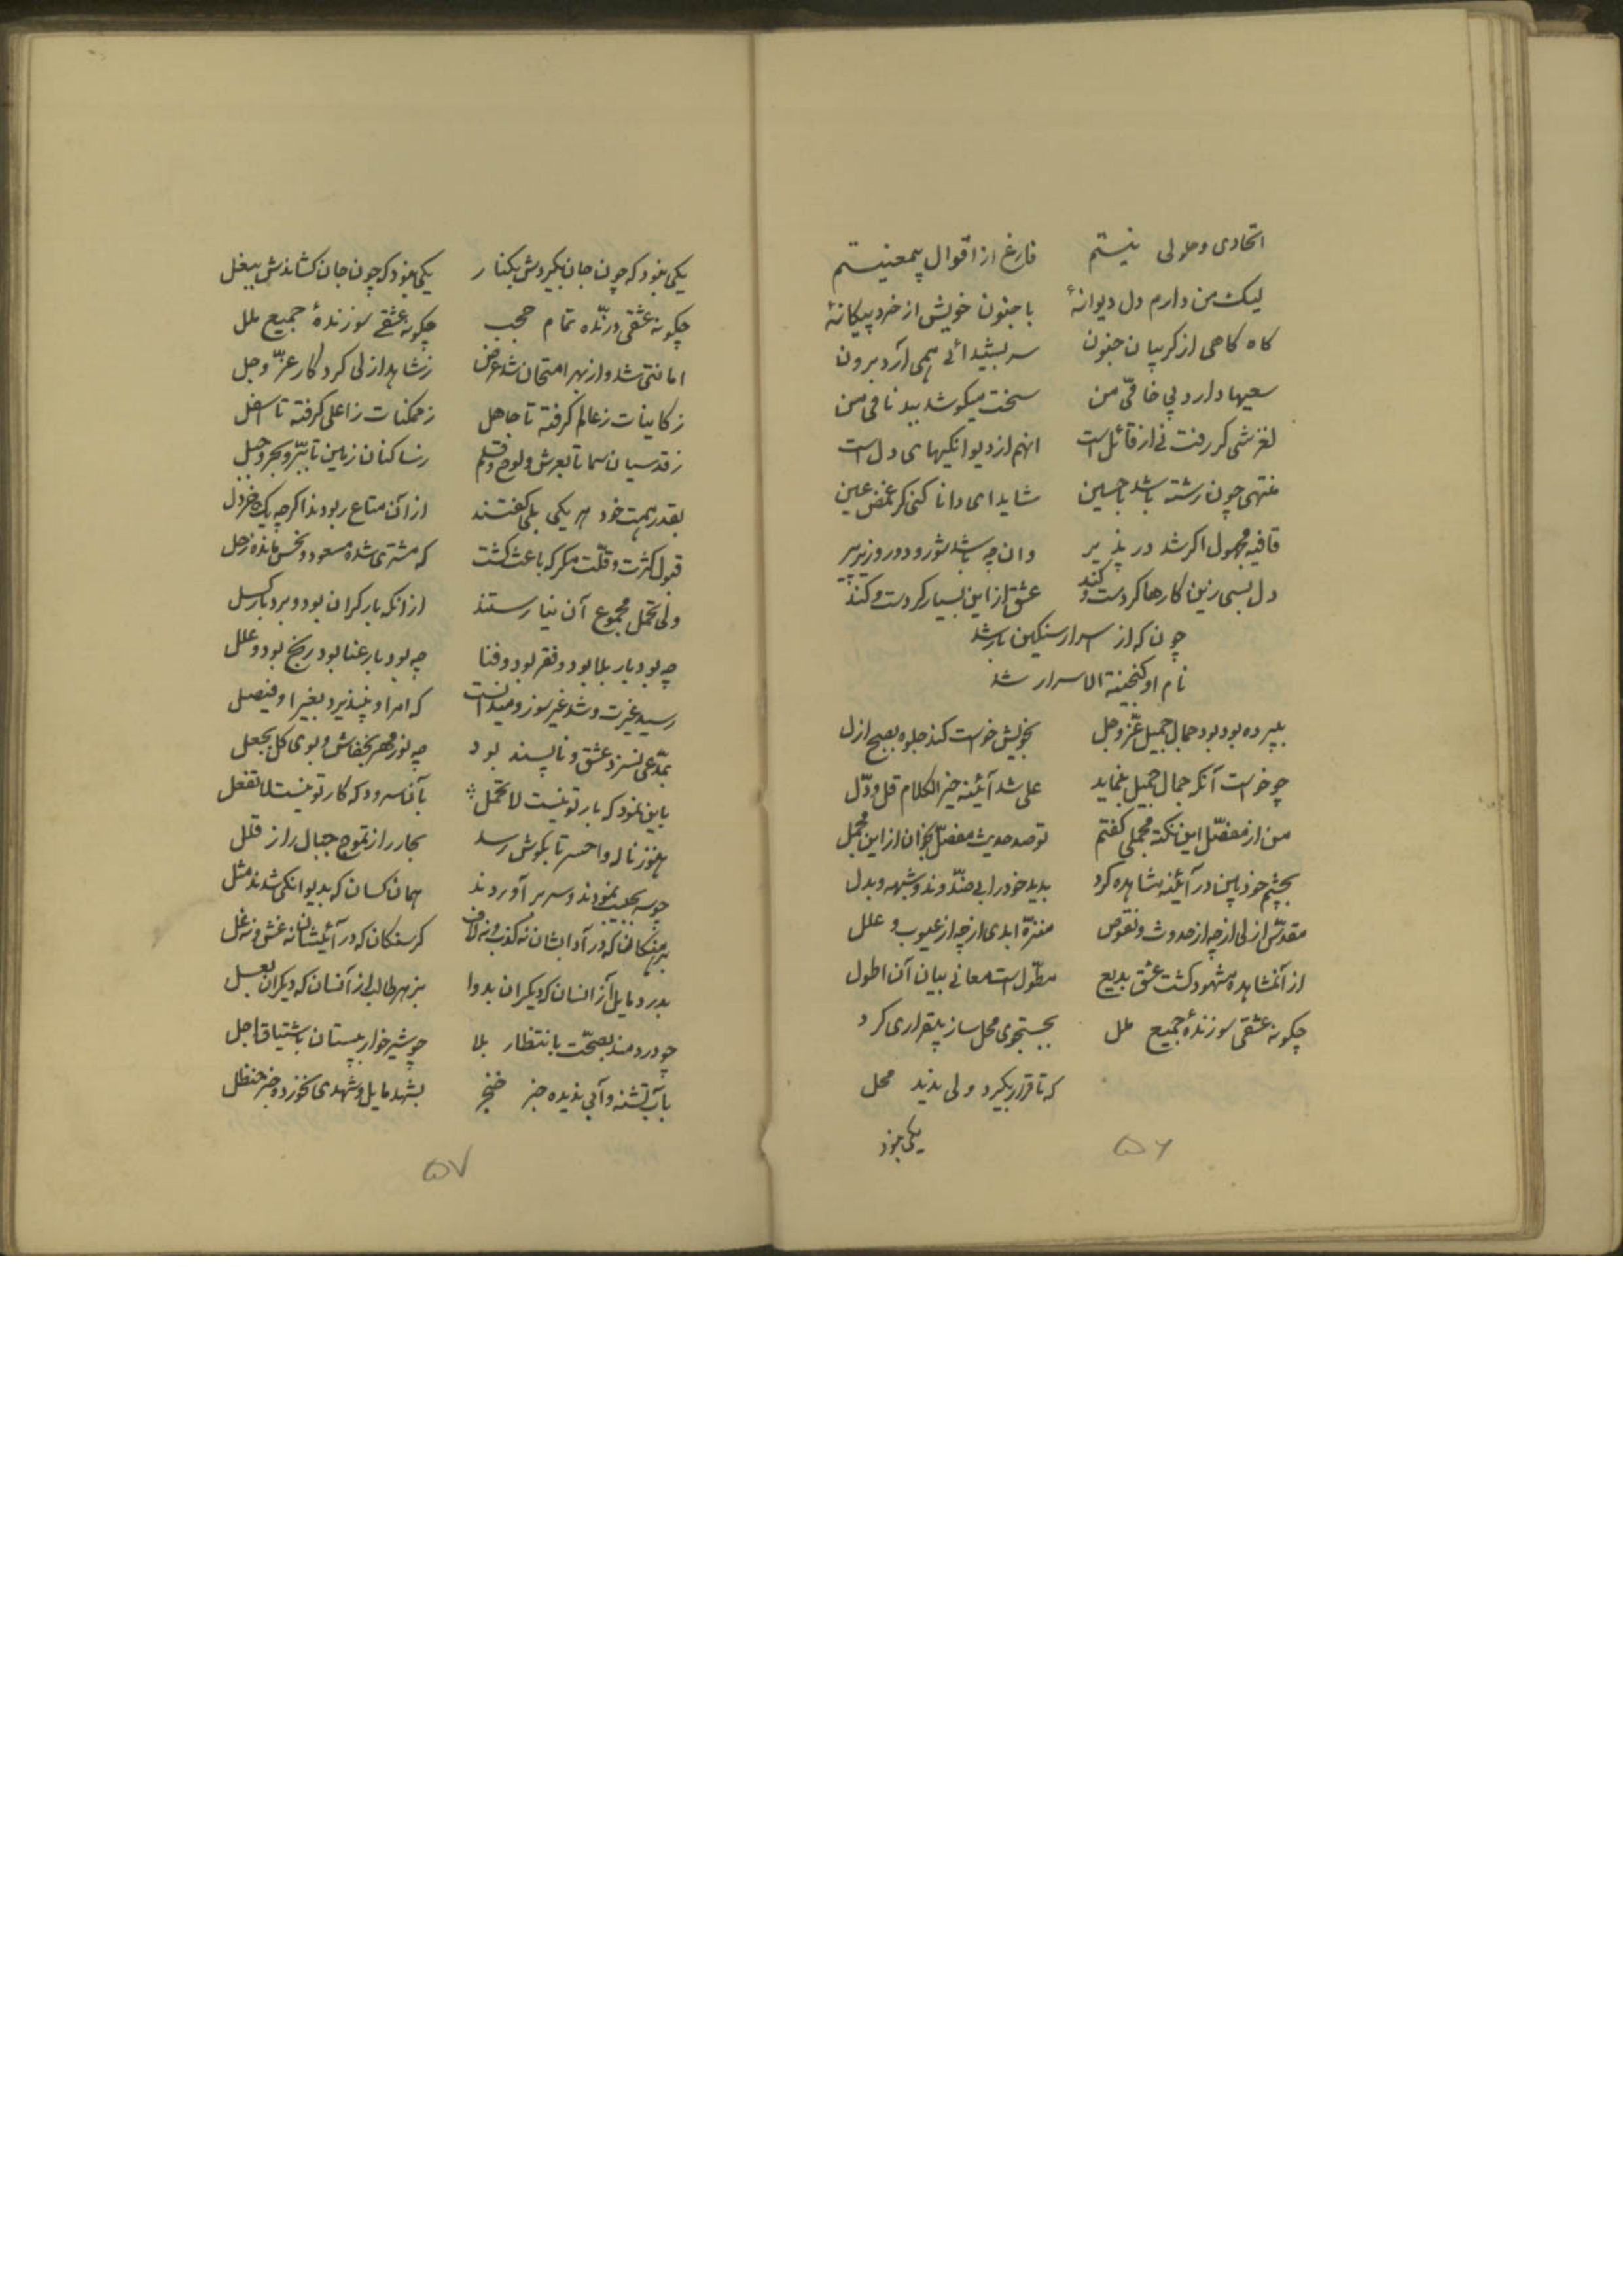 اتحادی و حلولی نیستم فارغ از اقوال بیمعنیستم
لیک من دارم دل دیوانهٔ با جنون خویش از خرد بیکانهٔ
کاه کاهی از کریبان جنون سر بشیدائی همی آرد برون
سعیها دارد پی خامیّ من سخت میکوشد ببدنامی من
لغزشی کر رفت نی از قائل است آنهم از دیوانکیهای دل است
منتهی چون رشته باشد با حسین شاید ای دانا کنی کر غمض عین
قافیه مجهول اکر شد در پذیر وان چه باشد شور و دور و زیر
دل بسی زین کارها کردست و کند عشق از این بسیار کردست و کند
چون که از اسرار سنکین بار شد
نام او کنجینة الاسرار شد
بپرده بود بود جمال جمیل عزّ وجل بخویش خواست کند جلوه بصبح ازل
چو خواست آنکه جمال جمیل بنماید علی شد آئینه خیر الکلام قل و دلّ
من از مفصّل این نکته مجملی کفتم تو صد حدیث مفصّل بخوان از این مجمل
بچشم خود بین در آینه مشاهده کرد بدید خود را بی ضدّ و ند و شبهه و بدل
مقدّس ازلی از چه از حدوث و نقوص منزّه ابدی از چه از عیوب و علل
از آنمشاهده مشهود کشت عشق بدیع مطوّل است معانی بیان آن اطول
چکونه عشقی سوزندهٔ جمیع علل بجستجوی محل ساز بیقراری کرد
که تا قرار بکیرد ولی ندید محل
یکی نبود
۵۶
یکی نبود که چون جان بکیردش بکنار یکی نبود که چون جان کشاندش ببغل
چکونه عشقی درنّده تمام حجب چکونه عشقی سوزندهٔ جمیع علل
امانتی شد و از بهر امتحان شد عرض ز شاهد ازلی کردکار عزّ وجل
ز کاینات ز عالم کرفته تا جاهل ز ممکنات ز اعلی کرفته تا اسفل
ز قدسیان سما تا بعرش و لوح و قلم ز ساکنان زمین تا ببرّ و بحر و جبل
بقدر همت خود هر یکی بلی کفتند از آن متاع ربودند اکرچه یک خردل
قبول کثرت و قلّت مکر که باعث کشت که مشتری شده مسعود و نحس مانده زحل
ولی تحمل مجموع آن نیارستند از انکه بار کران بود و برد بار کسل
چه بود بار بلا بود و فقر بود و فنا چه بود بار عنا بود رنج بود و علل
رسید غیرت و شد غیر سوز و میدانست که امر او نپذیرد بغیر او فیصل
بمدّعی نسزد عشق و ناپسند بود چه نور مهر بخفاش و بوی کل بجعل
باین نمود که بار تو نیست لا تحمل بآن سرود که کار تو نیست لا تفعل
هنوز ناله واحسرتا بکوش رسد بحار را ز تموج جبال را ز قلل
چو سر بجیب نمودند و سر بر آوردند همان کسان که بدیوانکی شدند مثل
برهنکان که در آدابشان نه کذب و نه لاف کرسنکان که در آئینشان نه غش و نه غل
بدرد مایل از آنسان که دیکران بدوا بزهر طالب از آنسان که دیکران بعسل
چو دردمند بصحّت بانتظار بلا چو شیرخوار بپستان باشتیاق اجل
بآب تشنه و آبی ندیده جز خنجر بشهد مایل و شهدی نخورده جز حنظل
۵۷